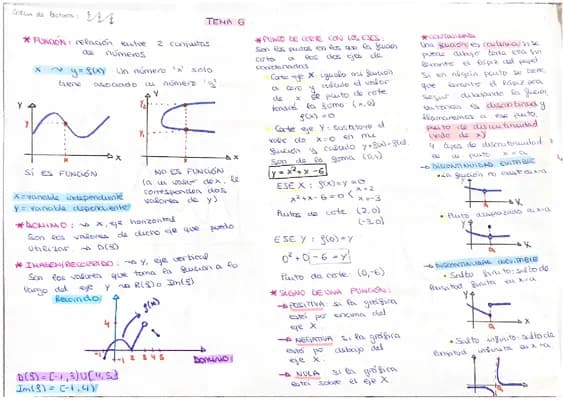 TEMA 6
* FUNCIÓN: relación entre 2 conjuntos
de números
x → y=f(x) Un número 'x' solo
tiene asociado un número 'y'
Y
X
SÍ ES FUNCIÓN
Y
X
NO ES FUNCIÓN
(a un valor de x, le
corresponden dos
valores de y)
X=variable independiente
Y= variable dependiente
* DOMINIO: → X, eje horizontal
Son los valores de dicho eje que puedo
utilizar. → D(f)
* IMAGEN/RECORRIDO: → Y, eje vertical
Son los valores que toma la función a lo
largo del eje Y → R(f) o Im(f)
Recorrido:
f(x)
4
-1 1 2 3 4 5
Dominio:
D(f) = [-1,3) U [4,5]
Im(f) = [-1,4)
* PUNTO DE CORTE CON LOS EJES:
Son los puntos en los que la función
corta a los dos ejes de
coordenadas
Corte eje X: igualo mi función
a cero y calculo el valor
de x. El punto de corte
tendrá la forma (x,0)
f(x)=0
Corte eje Y: sustituyo el
valor de x=0 en mi
función y calculo y=f(x)=f(0).
Son de la forma (0,y)
y = x²+x-6
EJE X: f(x)=y=0
x²+x-6=0
x=2
x=-3
Puntos de corte (2,0)
(-3,0)
EJE Y: f(0)=y
0²+0-6=y
Punto de corte: (0,-6)
* SIGNO DE UNA FUNCIÓN:
→ POSITIVA: si la gráfica
está por encima del
eje X.
→ NEGATIVA: si la gráfica
está por debajo del
eje X.
→ NULA: si la gráfica
está sobre el eje X.
* CONTINUIDAD
Una función es continua si se
puede dibujar toda ella sin
levantar el lápiz del papel
Si en algún punto se tiene
que levantar el lápiz para
seguir dibujando la función,
entonces es discontinua y
llamaremos a ese punto,
punto de discontinuidad
(valor de x)
4 tipos de discontinuidad
en un punto x=a
→ DISCONTINUIDAD EVITABLE
• La función no existe en x=a
• Punto desplazado en x=a
→ DISCONTINUIDAD INEVITABLE
• Salto finito: salto de
longitud finita en x=a
• Salto infinito: salto de
longitud infinita en x=a